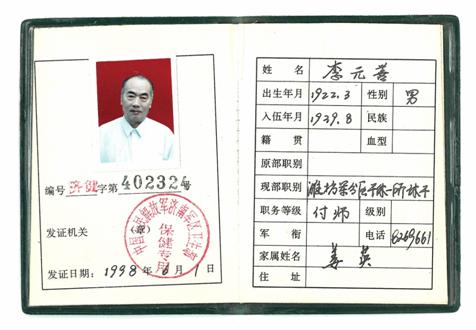 编号 济健字第402324号
发证机关 (章)
中国人民解放军济南军区卫生部
保健专用
发证日期：1998年6月1日
姓名 李元善
出生年月 1922.3 性别 男
入伍年月 1939.8 民族
籍贯 血型
原部职别
现部职别 潍坊军分区干休一所休干
职务等级 付师 级别
军衔 电话 8269661
家属姓名 姜英
住址